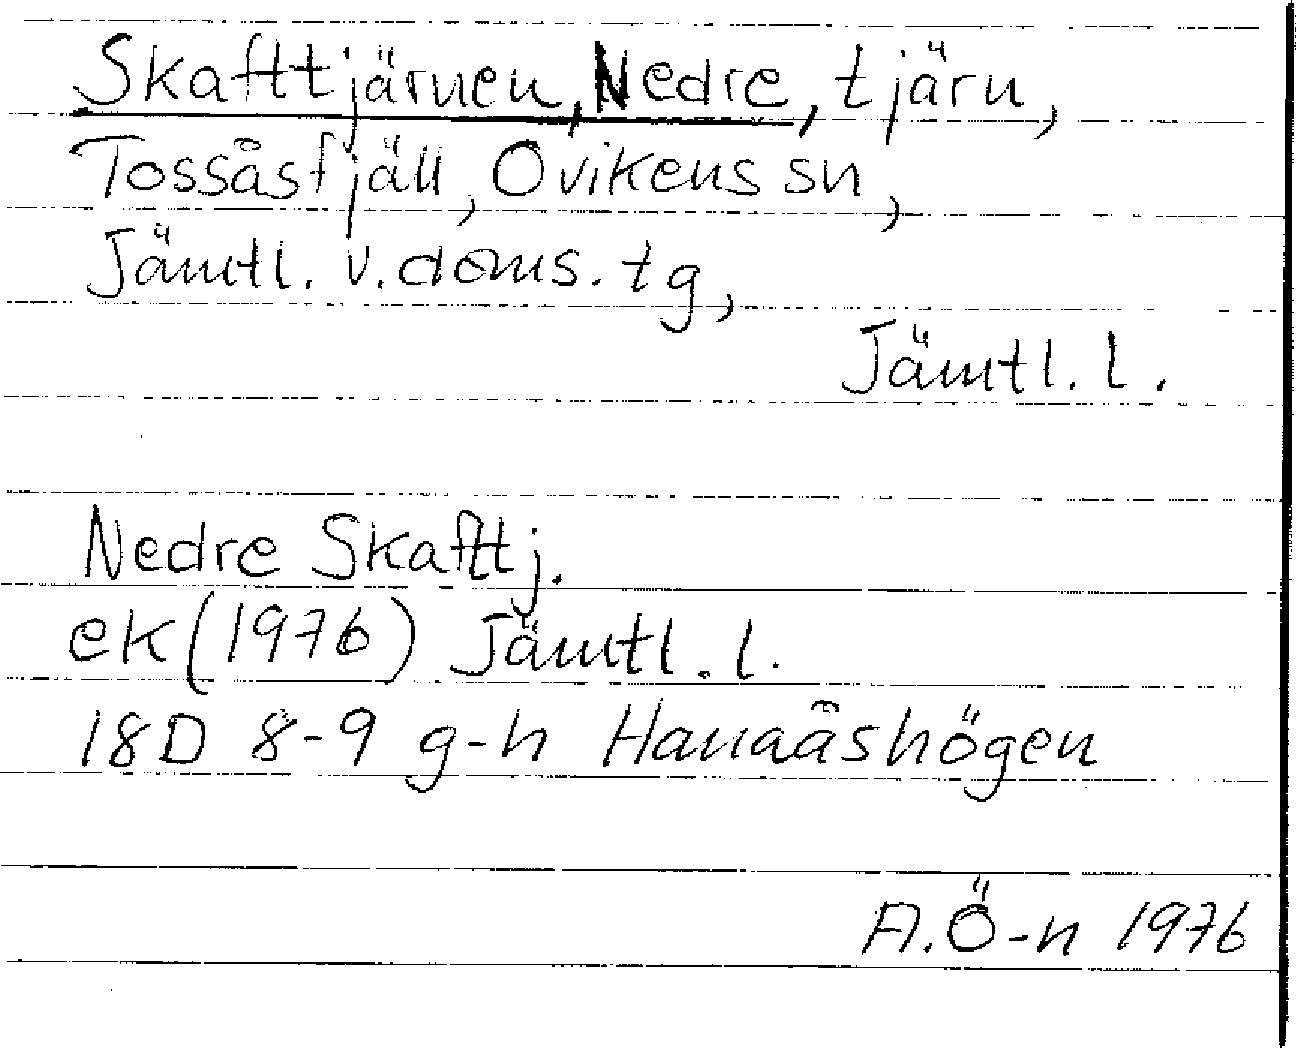 Skafttjärnen, Nedre, tjärn,
Tossåsfjäll, Ovikens sn,
Jämtl. v. doms. tg,
Jämtl. l.
Nedre Skafttj.
ek (1976) Jämtl. l.
18D 8-9 g-h Hanaåshögen
A. Ö-n 1976